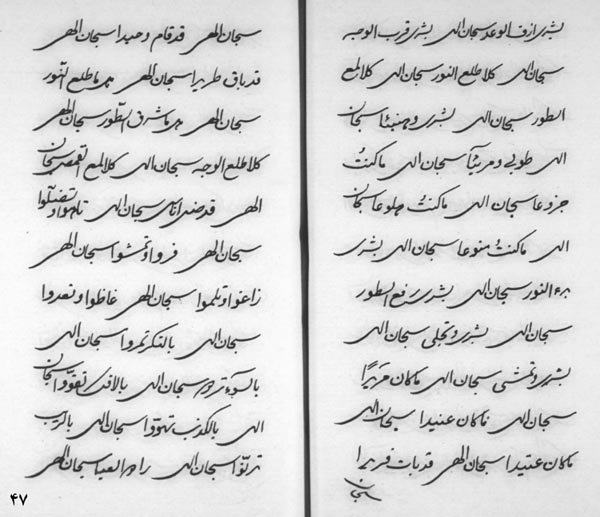 بشری ازف الوعد سبحان الهی بشری قرب الوجه
سبحان الهی کلا طلع النور سبحان الهی کلا لمع
الطور سبحان الهی بشری و هنیئا سبحان
الهی طوبی و مریئا سبحان الهی ما کنت
جزوعا سبحان الهی ما کنت هلوعا سبحان
الهی ما کنت منوعا سبحان الهی بشری
النور سبحان الهی بشری رفع الطور
سبحان الهی بشری و تجلی سبحان الهی
بشری و تمشی سبحان الهی ما کان
سبحان الهی ما کان عنیدا سبحان الهی
ما کان عتیدا سبحان الهی قد بات فریدا
سبحان
سبحان الهی قد قام وحیدا سبحان الهی
قد باق طریرا سبحان الهی مه ما طلع النور
سبحان الهی مه ما شرق الطور سبحان الهی
کلا طلع الوجه سبحان الهی کلا لمع سبحان
الهی قد سبحان الهی
سبحان الهی فروا و تمشوا سبحان الهی
زاغوا و سبحان الهی غاظوا و تعدوا
سبحان الهی بالنکر تمروا سبحان الهی
بالسوء سبحان الهی بالافک تفوّوا سبحان
الهی بالکذب تهووا سبحان الهی بالریب
تربّوا سبحان الهی سبحان الهی
۴۷